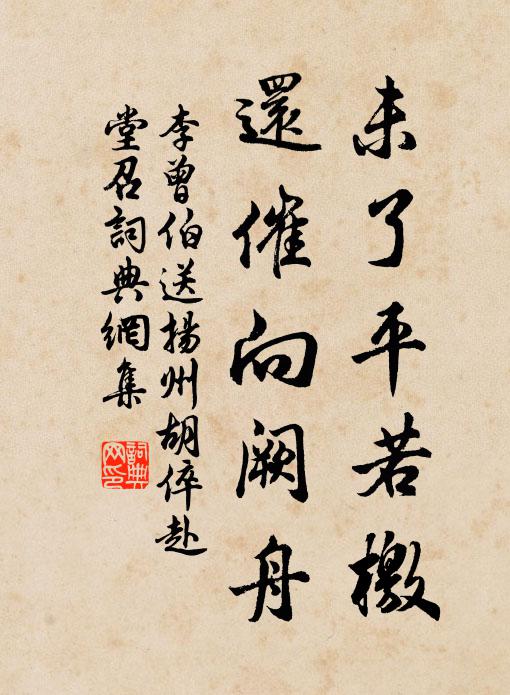 未了平若檄
還催向闕舟
李曾伯送揚州胡倅赴
堂召詞典網集
詞典
网印